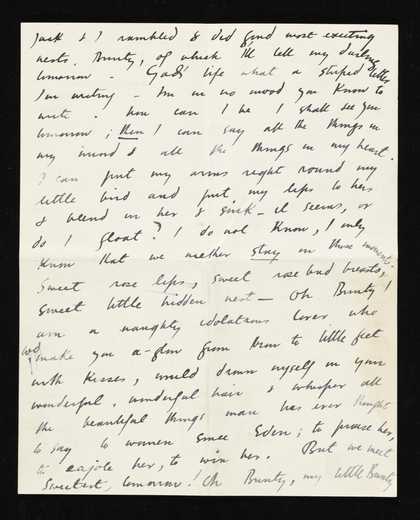 Jack & I rambled & did find most exciting
nests. Bunty, of which I'll tell my darling
tomorrow - God's life what a stupid letter
I'm writing - I'm in no mood you know to
write. How can I be I shall see you
tomorrow; then I can say all the things in
my mind & all the things in my heart.
I can put my arms right round my
little bird and put my lips to hers
& blend in her & sink - it seems, or
do I gloat? I do not know, I only
know that we neither stay in those moments.
Sweet rose lips, sweet rose bud breasts,
Sweet little hidden nest - Oh Bunty!
am a naughty idolatrous lover who
wd make you a-glow from brow to little feet
with kisses, would drown myself in your
wonderful, wonderful hair & whisper all
the beautiful things man has ever thought
to say to women since Eden; to praise her,
to cajole her, to win her. But we meet
Sweetest, tomorrow! Oh Bunty, my little Bunty